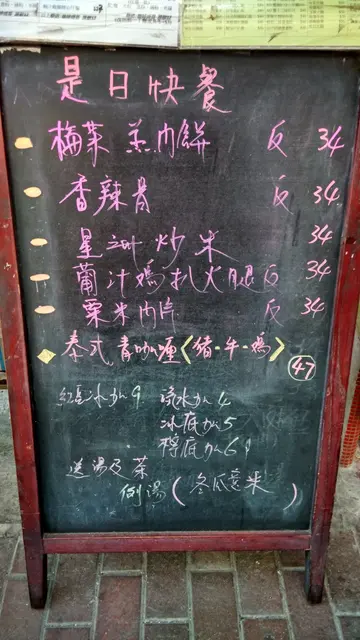 是日快餐
梅菜蒸肉餅 反 34
香辣骨 反 34
星洲炒米 34
葡汁鸡扒火腿反 34
粟米肉片 反 34
泰式青咖喱《豬·牛·鸡》 47
紅豆冰加9 流水加4
冰底加5
檸底加6
送湯及茶
例湯(冬瓜薏米)